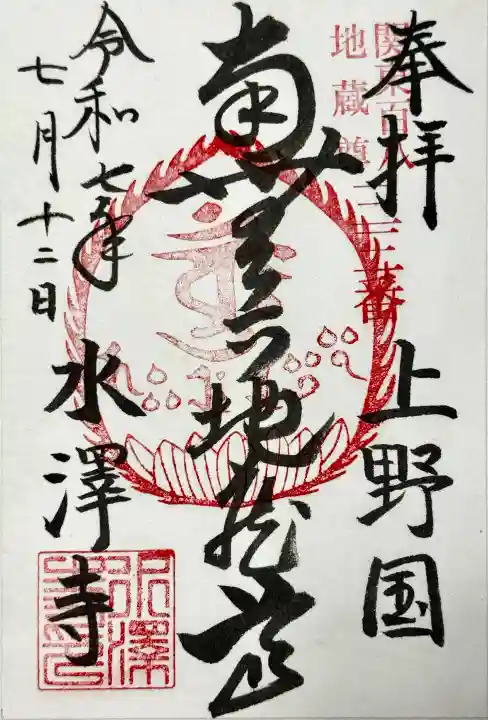 奉拝
上野国
関東百八
地蔵尊二三番
南無地蔵尊
令和七年
七月十二日
水澤寺